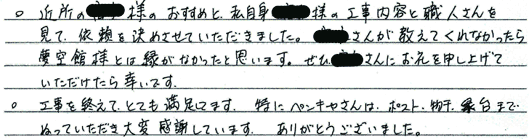 ○ 近所の様のおすすめと、私自身様の工事内容と職人さんを
見て、依頼を決めさせていただきました。さんが教えてくれなかったら
夢空館様とは縁がなかったと思います。ぜひさんにお礼を申し上げて
いただけたら幸いです。
○ 工事を終えて、とても満足してます。特にペンキやさんは、ポスト、物干、まで
ぬっていただき大変感謝しています。ありがとうございました。